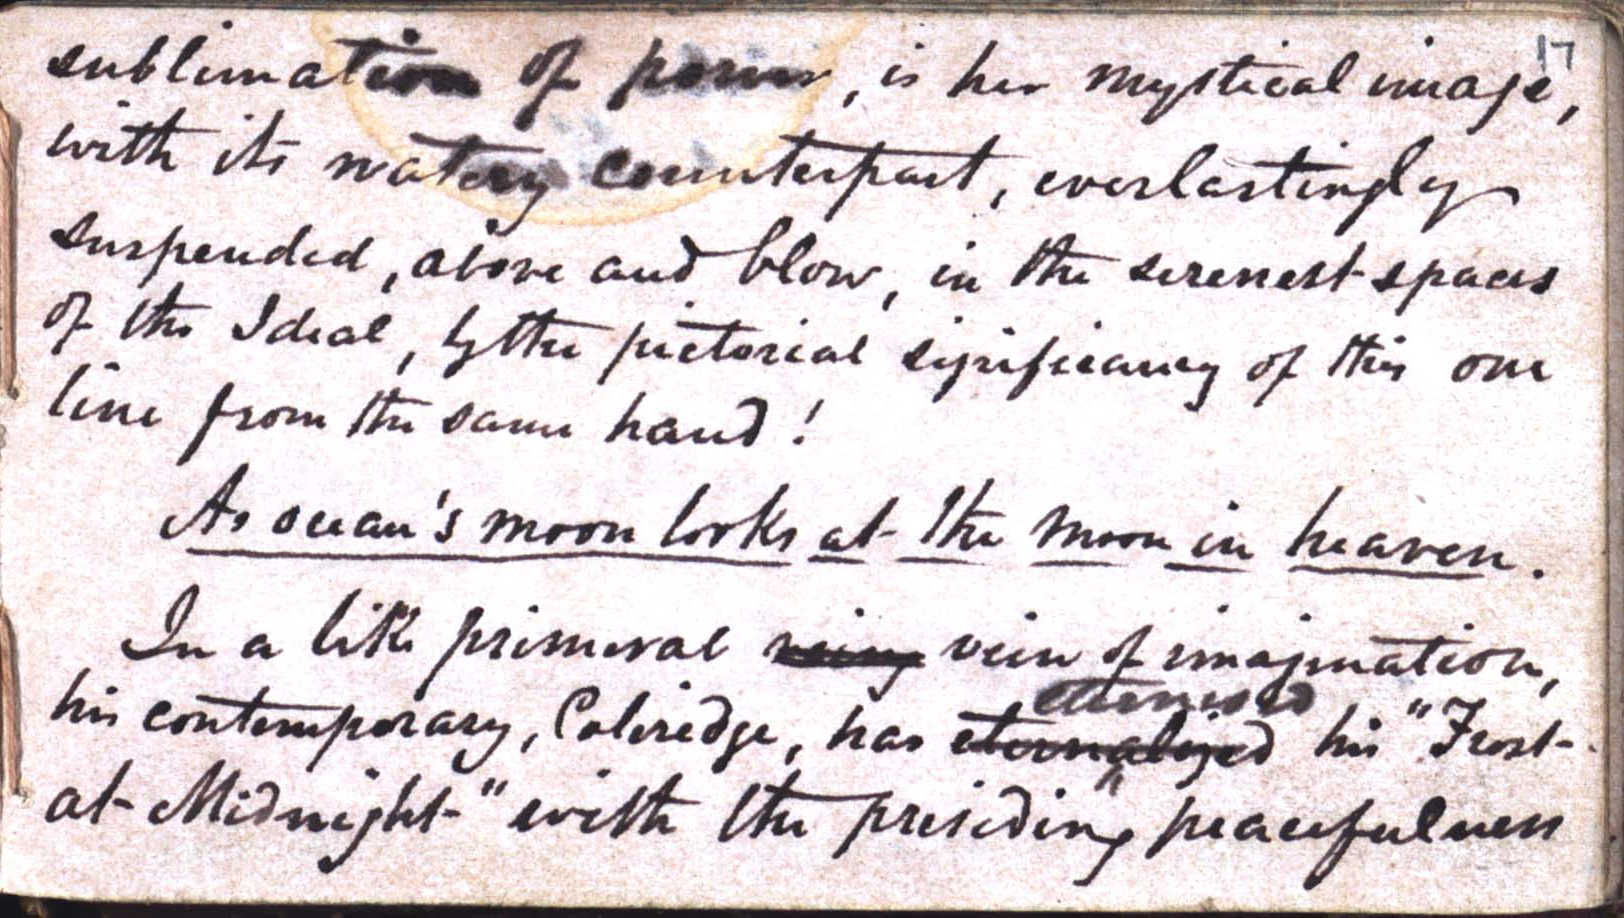 17
sublimation of power, is her mystical image,
with its watery counterpart, everlastingly
suspended, above and blow, in the serenest spaces
of the Ideal, by the pictorial significancy of this one
line from the same hand!
As ocean's moon looks at the moon in heaven.
In a like primeval vein of imagination,
his contemporary, Coleridge, has eternalized his "Frost-
eternised
at Midnight" with the presiding "peacefulness